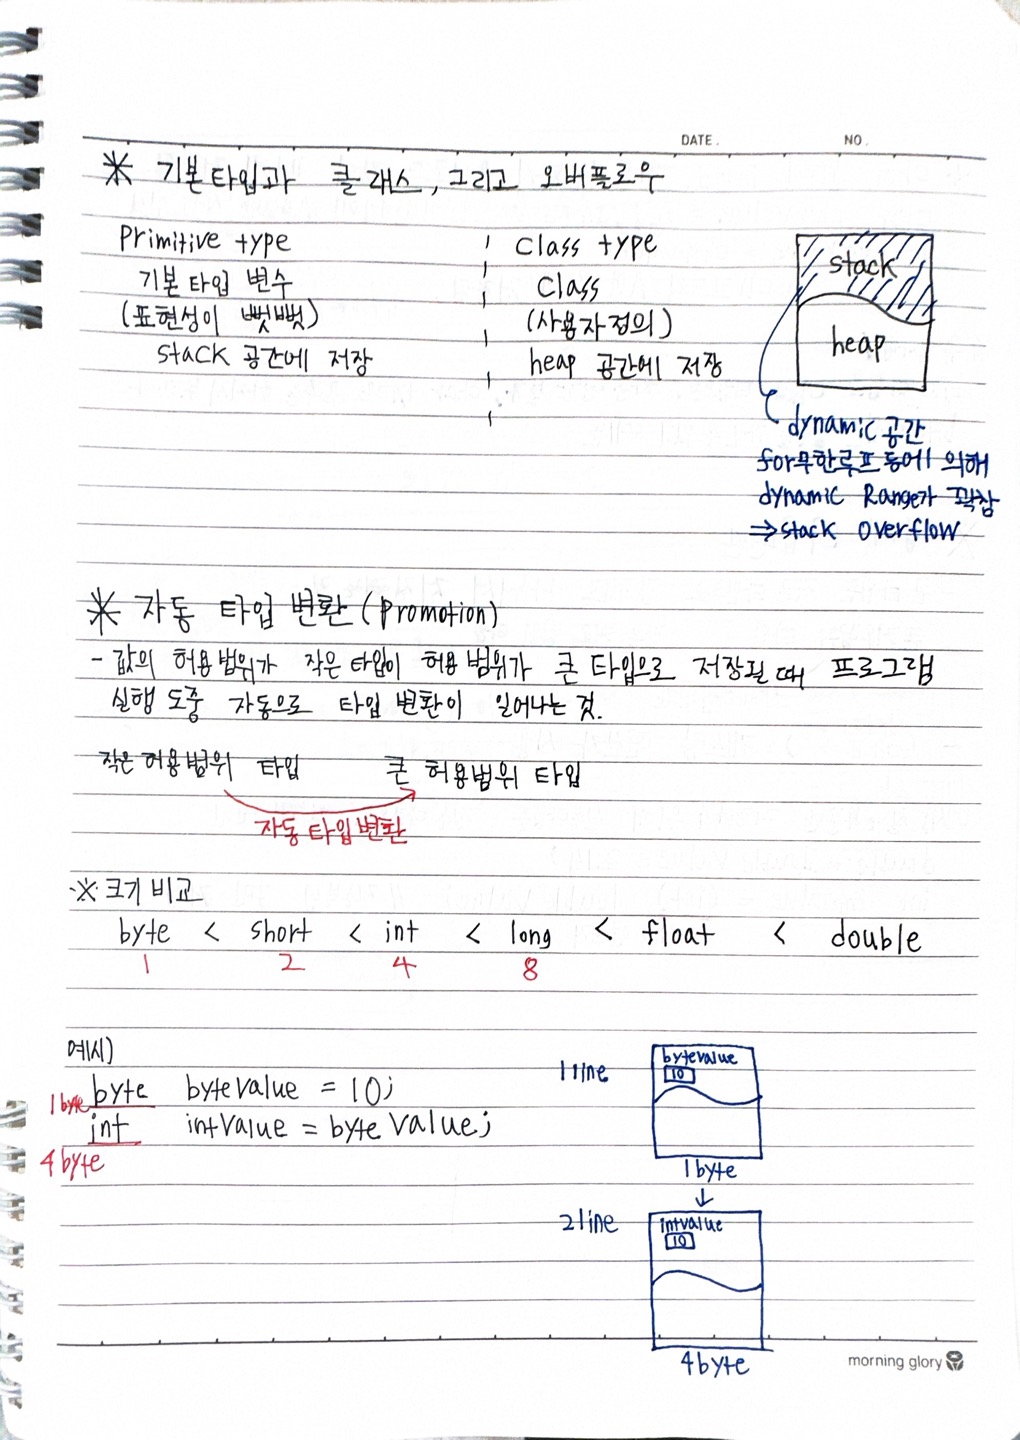 DATE. NO.
※ 기본타입과 클래스, 그리고 오버플로우
Primitive type
기본타입 변수
(표현성이 뻣뻣)
stack 공간에 저장
Class type
Class
(사용자정의)
heap 공간에 저장
stack
heap
dynamic 공간
for무한루프 등에 의해
dynamic Range가 꽉참
⇒ stack overflow
※ 자동 타입 변환 (Promotion)
- 값의 허용범위가 작은 타입이 허용범위가 큰 타입으로 저장될 때 프로그램
실행 도중 자동으로 타입 변환이 일어나는 것.
작은 허용범위 타입 큰 허용범위 타입
자동타입변환
※ 크기 비교
byte < short < int < long < float < double
1 2 4 8
예시)
1byte byte bytevalue = 10;
int intvalue = byte value;
4byte
1line
bytevalue
10
1byte
↓
2line
intvalue
10
4byte
morning glory